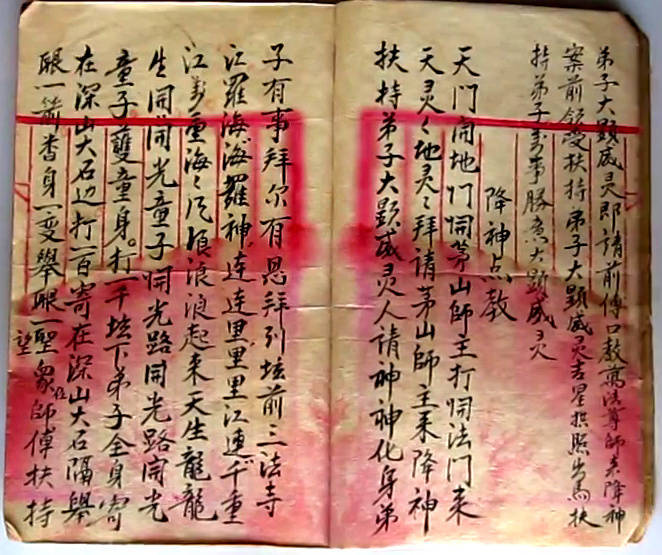 弟子大顕威灵即請前傳口教萬法尊師来降神
案前領受扶持弟子大顕威灵吉星拱照出馬扶
持弟子萬事勝意大顕威灵
降神点教
天門開地门開茅山師主打開法门来
天灵〻地灵〻拜請茅山師主来降神
扶持弟子大顕威灵人請神〻神化身弟
子有事拜尔有恩拜引坛前三法寺
江羅海海羅神連連里里里江連千重
江萬重海〻浪浪浪起来天生龍龍
生開開光童子開光路開光路開光
童子雙童身。打一千坛下弟子全身寄
在深山大石边打一百寄在深山大石隔舉
眼一箭香身一变舉眼一望聖衆師傳扶持